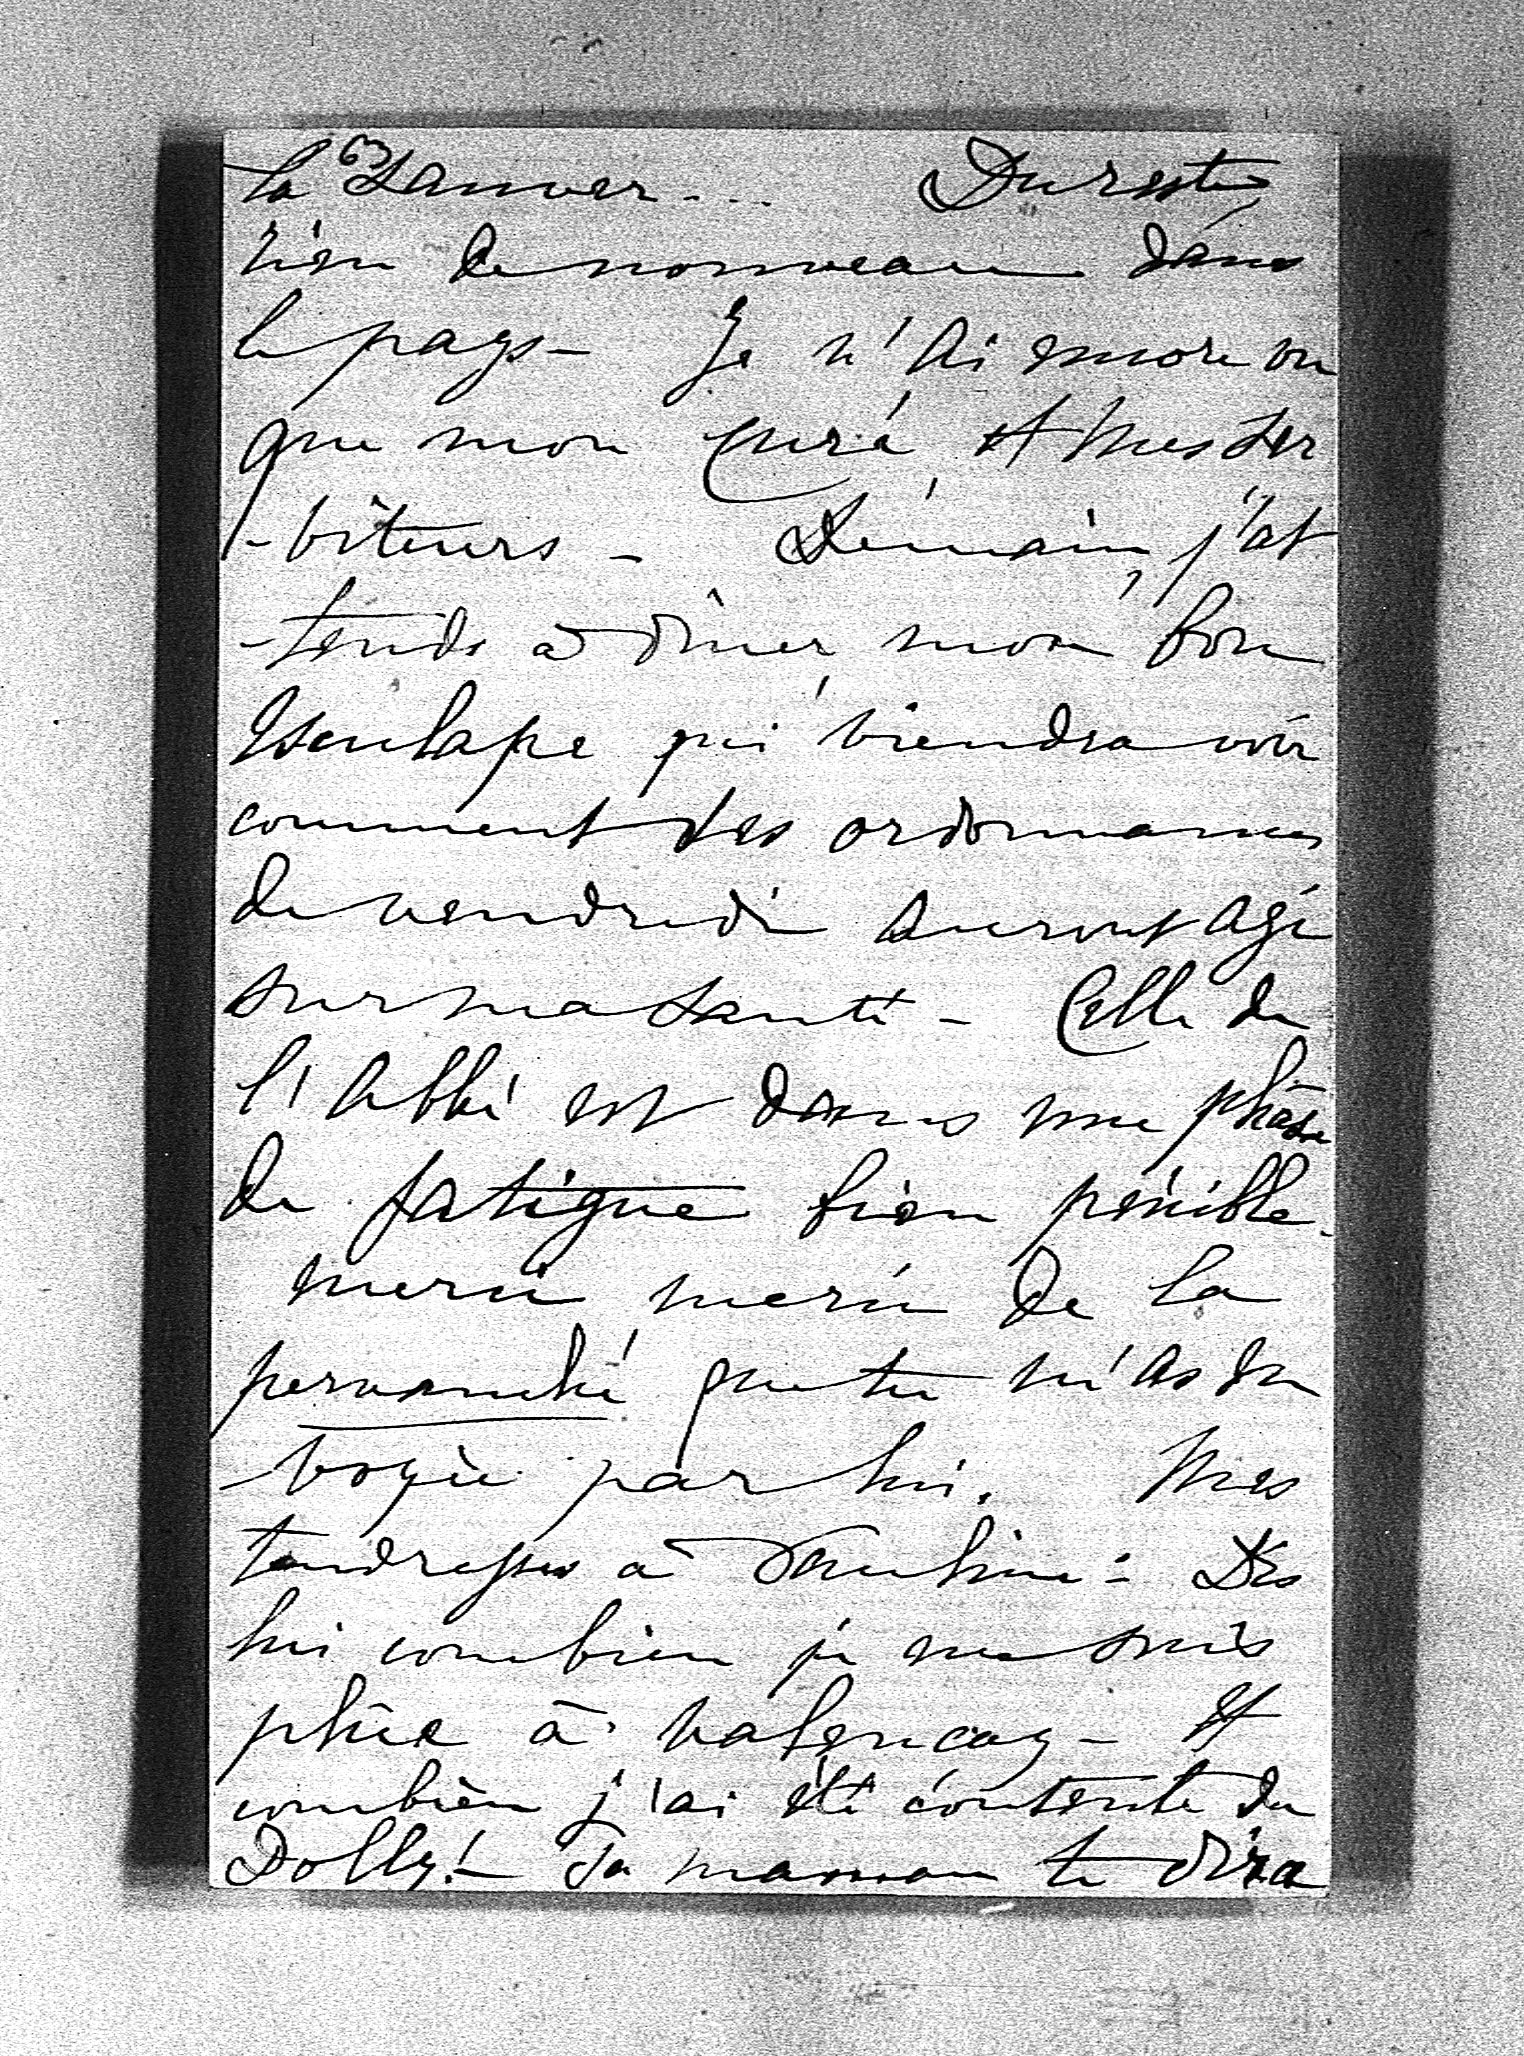 la sauver... Du reste,
rien de nouveau dans
le pays - Je n'ai encore vu
que mon Curé, et mes ser
-viteurs - Demain, j'at
-tends à dîner mon bon
Esculape qui viendra voir
comment ses ordonnances
de vendredi auront agi
sur ma santé - Celle de
l'Abbé est dans une phase
de fatigue bien pénible -
merci, merci de la
pervenche que tu m'as en
-voyée par lui. Mes
tendresses à Pauline - Dis
lui combien je me suis
plûe à Valençay - et
combien j'ai été contente de
Dolly! - Ta maman te dira